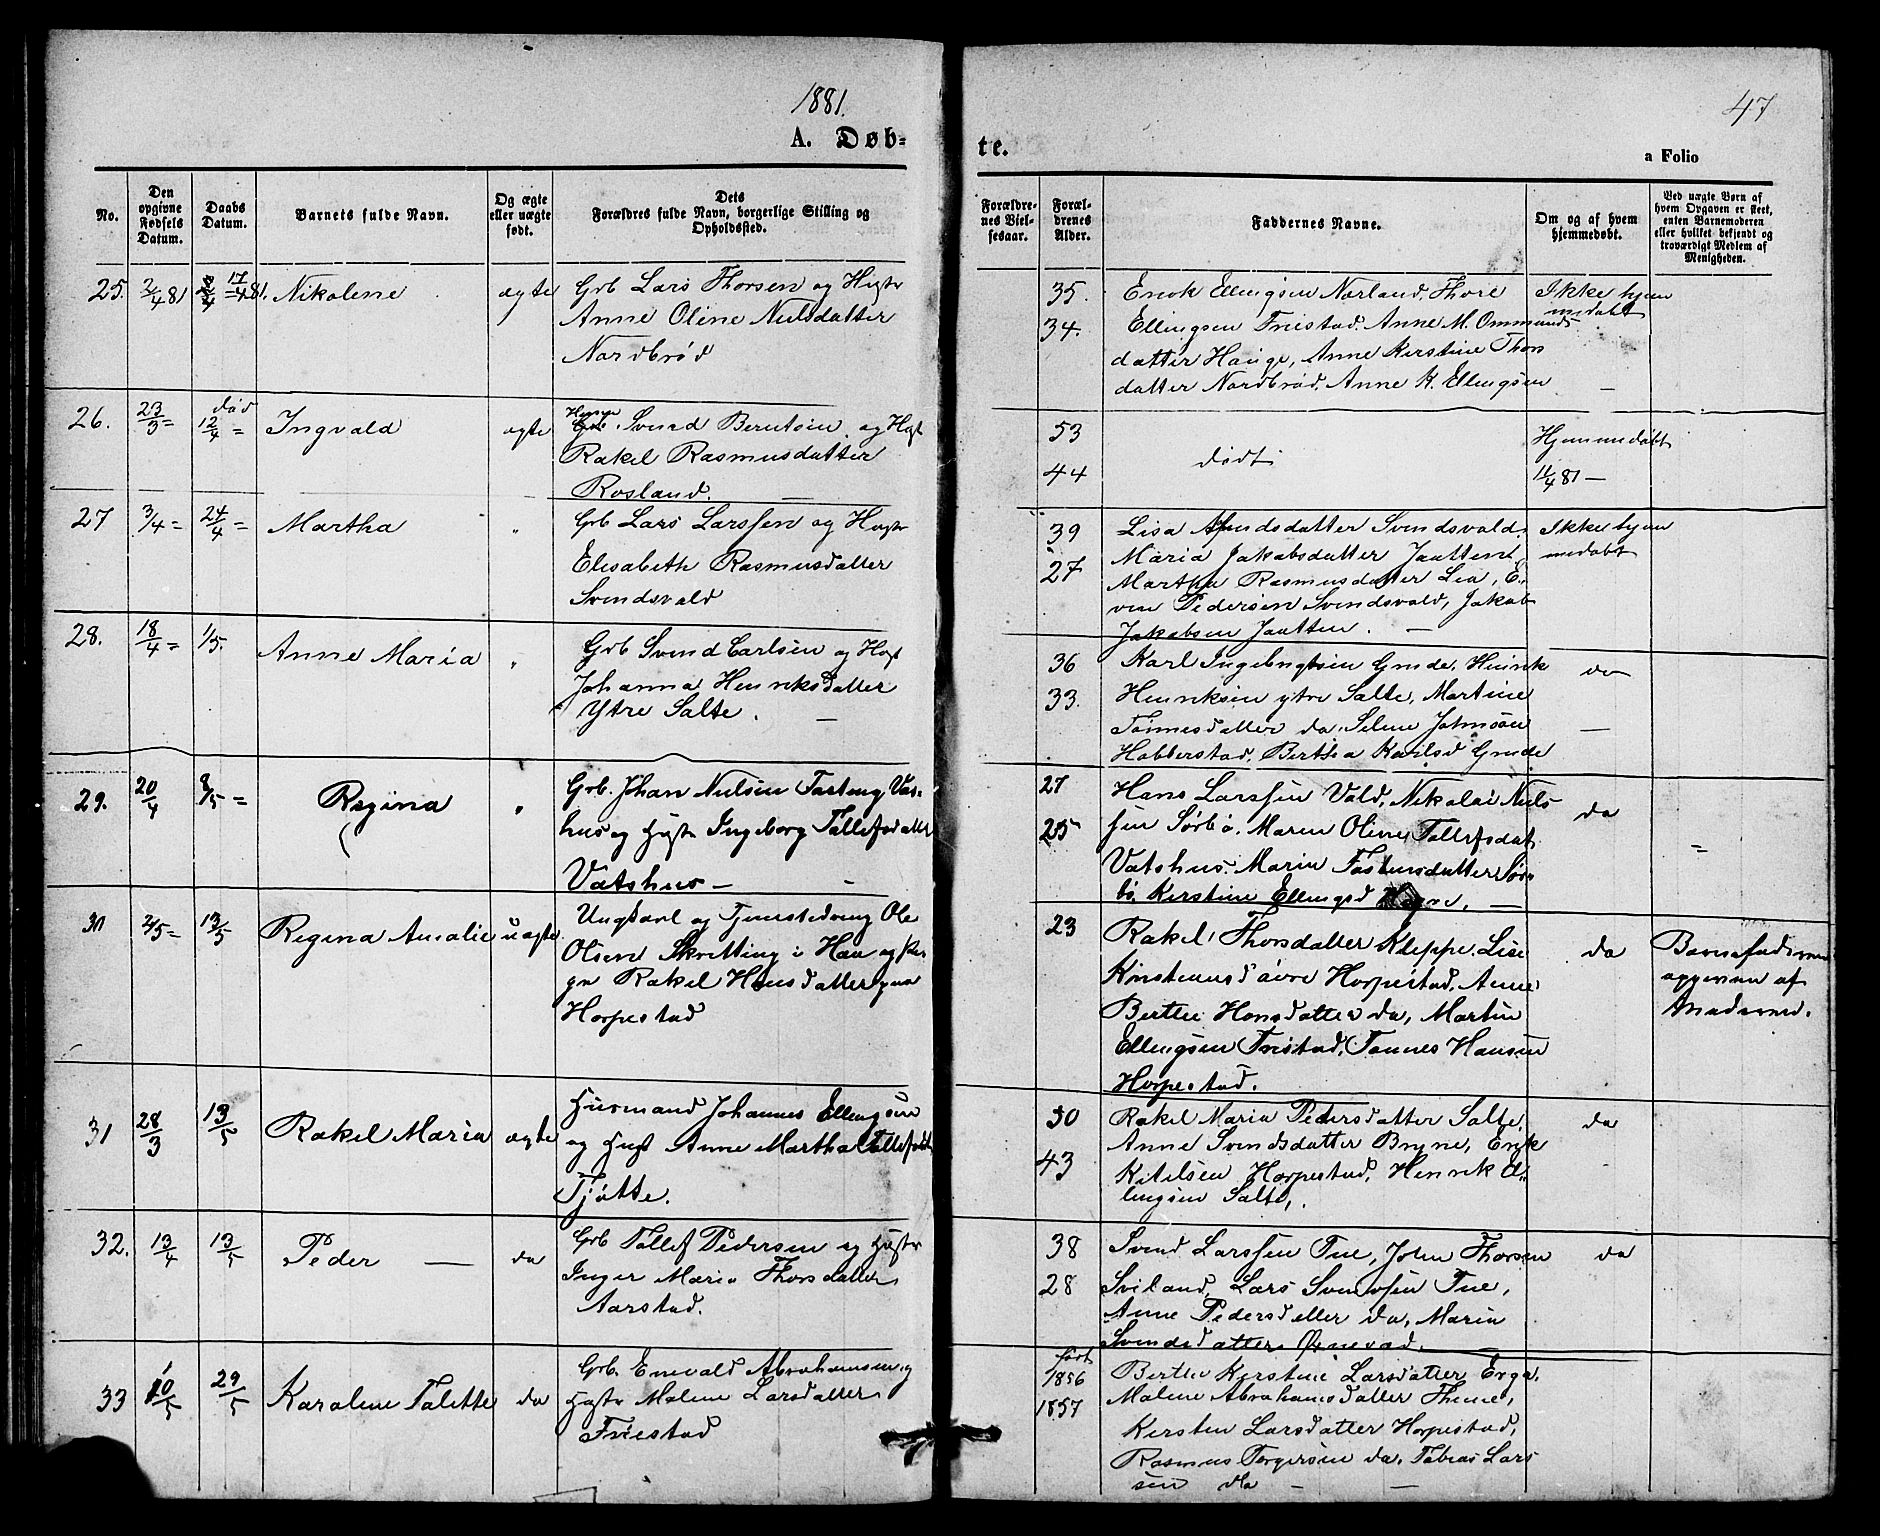 1881.
47
A. Døb-
te.
a Folio
No.
Den opgivne Fødsels Datum.
Daabs Datum.
Barnets fulde Navn.
Og ægte eller uægte født.
Dets Forældres fulde Navn, borgerlige Stilling og Opholdssted.
Forældrenes Vielsesaar.
Forældrenes Alder.
Faddernes Navne.
Om og af hvem hjemmedøbt.
Ved uægte Børn af hvem Opgaven er skeet, enten Barnemoderen eller hvilket bekjendt og troværdigt Medlem af Menigheden.
25. 2/4 81 17/4 81. Nikolene ægte Grb Lars Thorsen og Hustr
Anne Oline Nilsdatter
Nordbrød
35. Enok Ellingsen Nærland, Thore Ikke hjem
34. Ellingsen Friestad. Anne M. Ommunds medøbt
datter Hauge, Anne Kerstine Thors
datter Nordbrød. Anne K. Ellingsen —
26. 23/3 = død 12/4 = Ingvald ægte Svend Berntsen og Hust
Rakel Rasmusdatter
Rosland. —
53 Hjemmedøbt
44 dødt 11/4 81 —
27 3/4 = 24/4 = Martha " Grb Lars Larssen og Hustr
Elisabeth Rasmusdatter
Svendsvald
39 Lisa datter Svendsvald. Ikke hjem
27 Maria Jakobsdatter Jaatten medøbt
Martha Rasmusdatter Lea, E-
ven Pedersen Svendsvald, Jakob
Jakobsen Jaatten. —
28. 18/4 = 1/5. Anne Maria " Grb Svend Carlsen og Hust
Johanna Henriksdatter
Ytre Salte. —
36 Karl Ingebrigtsen Grude, Henrik do
33. Henriksen ytre Salte, Martine
Tønnesdatter do. Selene Johnsen —
Hobberstad. Berthea Karlsd Grude
29. 20/4 8/5 = Regina " Grb. Johan Nielsen Tasteng Vas-
hus og Hustr Ingeborg Tollefsdatter
Vatshus —
27 Hans Larssen Vold, Nikolai Niels
25 sen Sørbø. Maren Oline Tollefsdat. do =
Vatshus. Maria Tostensdatter Sør-
bø. Kerstine Ellingsd —
30 2/5 = 13/5 Regina Amalie uægte Ungkarl og Tjenestedreng Ole
Olsen Skretting i Haa og Pi-
ge Rakel Hansdatter
Horpestad
23 Rakel Thorsdatter Kleppe, Lise do Barnefaderen
Horpestad. Anne opgiven af
Berthe Hansdatter do, Martin Moderen.
Ellingsen Friestad, Tønnes Hansen
Horpestad.
31 28/3 13/5 Rakel Maria ægte Husmand Johannes Ellingsen
og Hust Anne Martha Tollefsdt
Tjøtte.
50 Rakel Maria Pedersdatter Salte, do
Anne Svendsdatter Bryne, Erik
43 Kitilsen Horpestad, Henrik El-
lingsen Salte,
32. 13/4 13/5 Peder — do Grb Tollef Pedersen og Hustr
Inger Maria Thorsdatter
Aarstad.
38 Svend Larssen Tue, John Thorsen do
28 Sviland, Lars Svendsen Tue,
Anne Pedersdatter do, Maria
Svendsdatter
33 10/5 29/5 Karolene Talette do Grb. Enevald Abrahamsen og
Hustr Malene Larsdatter
Friestad
født
1856 Berthe Kerstine Larsdatter Erga,
1857 Malene Abrahamsdatter Thime,
Kersten Larsdatter Horpestad,
Rasmus Torgersen do. Tobias Lars
sen do —